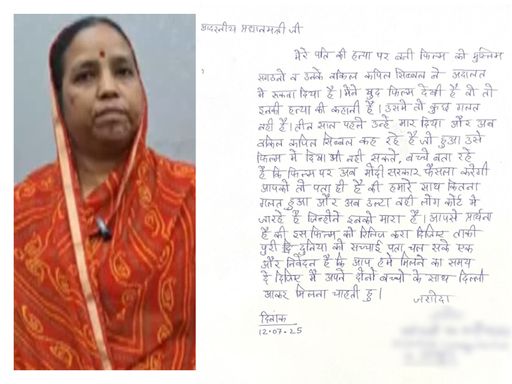 आदरणीय प्रधानमंत्री जी
मेरे पति की हत्या पर बनी फिल्म को मुस्लिम
संगठनो व उनके वकिल कपिल सिब्बल ने अदालत
मे रुकवा दिया है। मैने खुद फिल्म देखी है वो तो
इनकी हत्या की कहानी है। उसमे तो कुछ गलत
नही है। तीन साल पहले उन्हे मार दिया और अब
वकिल कपिल सिब्बल कह रहे है जो हुआ उसे
फिल्म मे दिखा भी नही सकते, बच्चे बता रहे
है कि फिल्म पर अब मोदी सरकार फैसला करेगी
आपको तो पता ही है की हमारे साथ कितना
गलत हुआ और अब उल्टा वही लोग कोर्ट मे
जा रहे है जिन्होने इनको मारा है। आपसे प्रार्थना
है की इस फिल्म को रिलिज करा दिजिए ताकी
पुरी दुनिया को सच्चाई पता चल सके एक
और निवेदन है कि आप हमे मिलने का समय
दे दिजिए मै अपने दोनो बच्चो के साथ दिल्ली
आकर मिलना चाहती हु।
जशोदा
दिनांक
12-07-25